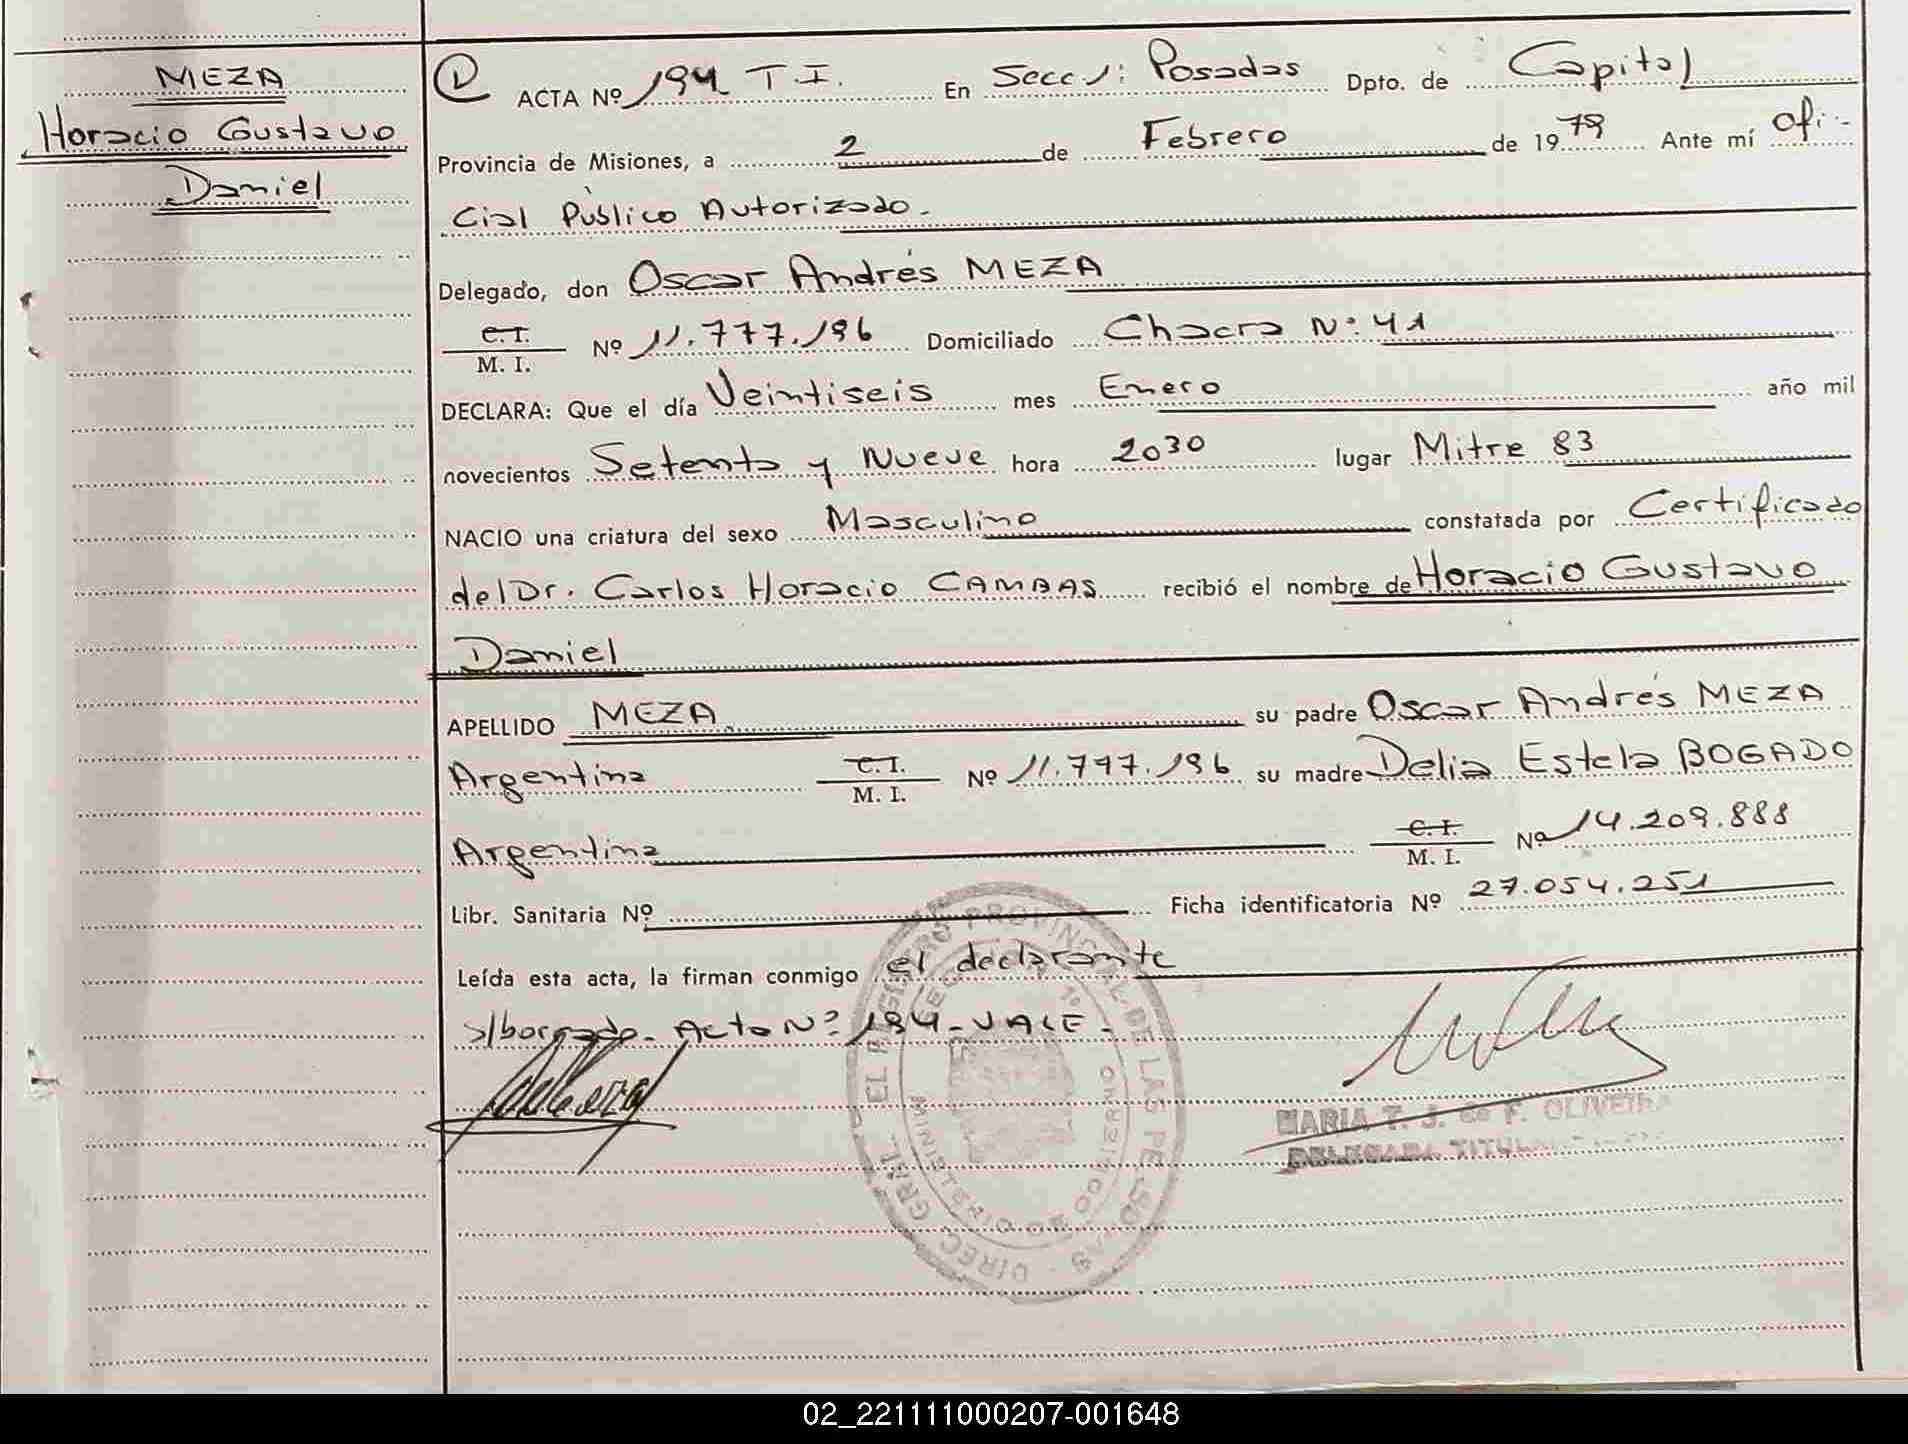 MEZA
Horacio Gustavo
Daniel
1
ACTA Nº 194 T.I. En Secc 1: Posadas Dpto. de Capital
Provincia de Misiones, a 2 de Febrero de 1979 Ante mí Ofi-
cial Público Autorizado.-
Delegado, don Oscar Andrés MEZA
C.I.
M. I. Nº 11.777.196 Domiciliado Chacra Nº 41
DECLARA: Que el día Veintiseis mes Enero año mil
novecientos Setenta y Nueve hora 2030 lugar Mitre 83
NACIO una criatura del sexo Masculino constatada por Certificado
del Dr. Carlos Horacio CAMBAS recibió el nombre de Horacio Gustavo
Daniel
APELLIDO MEZA su padre Oscar Andrés MEZA
Argentina C.I. M. I. Nº 11.777.196 su madre Delia Estela BOGADO
Argentina C.I. M. I. Nº 14.209.888
Libr. Sanitaria Nº Ficha identificatoria Nº 27.054.251
Leída esta acta, la firman conmigo el declarante
s/borrado- Acta Nº 194-VALE-
MARIA T. J. de F. OLIVEIRA
DELEGADA TITULAR
DIREC. GRAL. EL REGISTRO PROVINCIAL DE LAS PERSONAS
MINISTERIO DE GOBIERNO
02_221111000207-001648